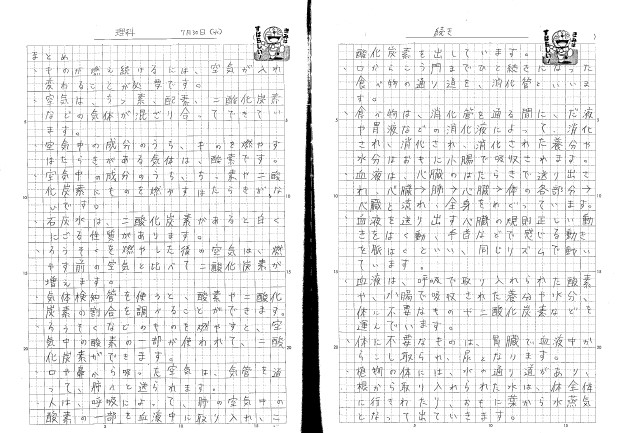 理科 7月30日(水)
まとめ
・ものが燃え続けるには、空気が入れ
変わることが必要です。
・空気は、ちっ素、酸素、二酸化炭素
などの気体が混ざり合ってできてい
ます。
・空気中の成分のうち、ものを燃やす
はたらきがある気体は、酸素です。
・空気中の成分のうち、ちっ素や二酸
化炭素にものを燃やすはたらきがな
いです。
・石灰水は、二酸化炭素があると白く
にごる性質があります。
・ろうそくを燃やした後の空気は、燃
やす前の空気と比べて二酸化炭素が
増えます。
・気体検知管を使うと、酸素や二酸化
炭素の割合を調べることができます。
・ろうそくなどのものを燃やすと、空
気中の酸素の一部が使われて、二酸
化炭素ができます。
・口や鼻から吸った空気は、気管を通
って、肺へと送られます。
・人は、呼吸によって、肺の空気中の
酸素の一部を血液中に取り入れ、二
続き
酸化炭素を出しています。
・口からこう門までひと続きになった
食べ物の通り道を、消化管といいま
す。
・食べ物は、消化管を通る間に、だ液
や胃液などの消化液によって、消化
され、消化され、消化された養分や
水分はおもに小腸で吸収されます。
・血液は、心臓のはたらきで送り出さ
れ、心臓→肺→心臓→体の各部分→
心臓と流れ、全身をめぐっています。
・血液を送り出す心臓の規則正しい動
きをはく動、手首などで感じる動き
を脈はくといい、同じリズムで動い
ています。
・血液は、呼吸で取り入れられた酸素
や、小腸で吸収された養分や水分、
体に不要なものや二酸化炭素などを
運んでいます。
・体に不要なものは、腎臓で血液中か
らこし取られ、尿となります。
・植物の体には、水の通り道があり、
根から取り入れられた水は、体全体
に行きわたり、おもに葉から水蒸気
となって出ていきます。